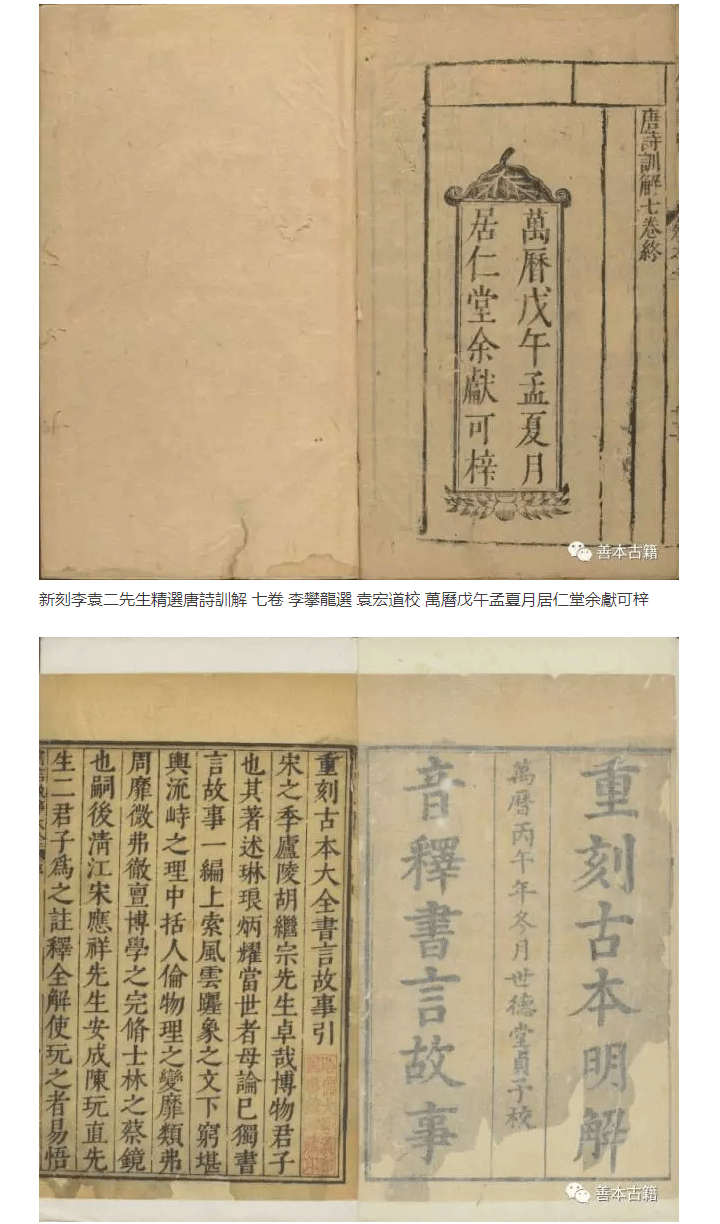 唐詩訓解七卷終
萬曆戊午孟夏月
居仁堂余獻可梓
善本古籍
新刻李袁二先生精選唐詩訓解 七卷 李攀龍選 袁宏道校 萬曆戊午孟夏月居仁堂余獻可梓
重刻古本明解
萬曆丙午年冬月世德堂貞子校
音釋書言故事
重刻古本大全書言故事引
宋之季廬陵胡繼宗先生卓哉博物君子
也其著述琳琅炳耀當世者毋論已獨書
言故事一編上索風雲曜象之文下窮堪
輿流峙之理中括人倫物理之變靡類弗
周靡微弗徹亶博學之完脩士林之蔡鏡
也嗣後清江宋應祥先生安成陳玩直先
生二君子為之註釋全解使玩之者易悟
善本古籍